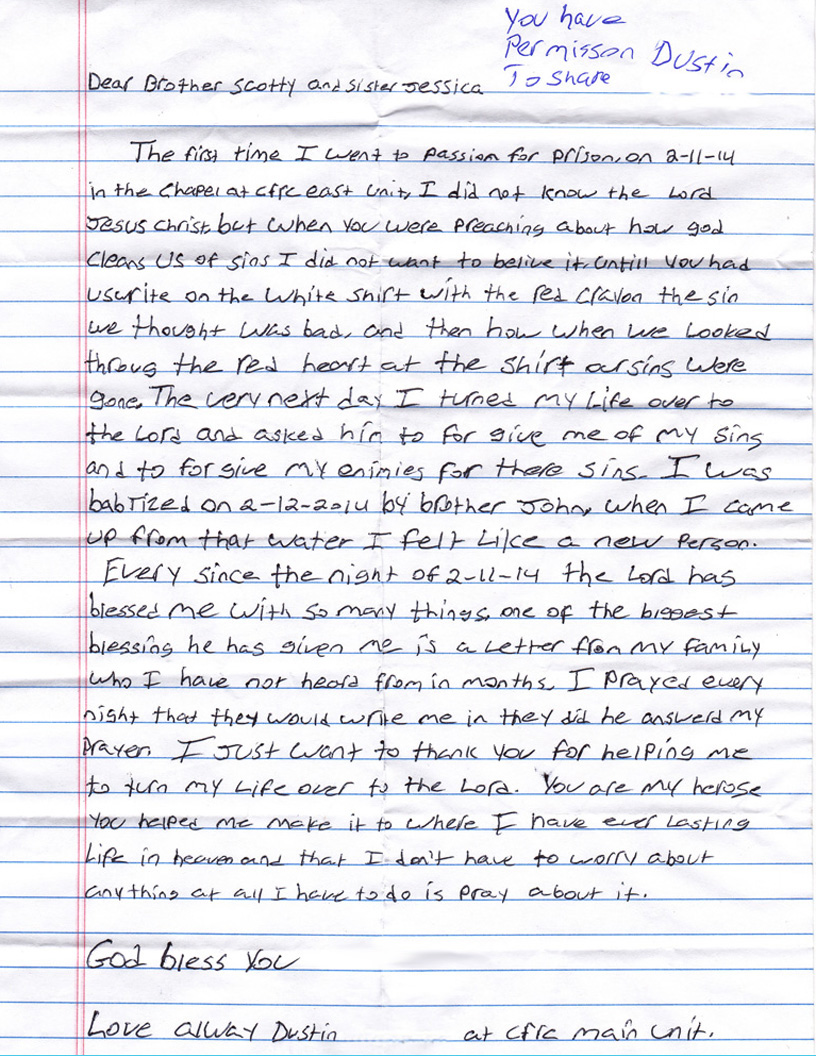 You have
Permisson Dustin
To share
Dear Brother Scotty and Sister Jessica
The first time I went to passion for prison, on 2-11-14
in the Chapel at cfrc east unit, I did not know the Lord
Jesus christ, but when you were preaching about how god
cleans us of sins I did not want to belive it, untill you had
uswrite on the white shirt with the red crayon the sin
we thought was bad, and then how when we looked
throug the red heart at the shirt oursins were
gone. The very next day I turned my Life over to
the Lord and asked him to for give me of my sins
and to forgive my enimies for there sins. I was
babtized on 2-12-2014 by brother John, when I came
up from that water I felt Like a new person.
Every since the night of 2-11-14 the Lord has
blessed me with so many things, one of the biggest
blessing he has given me is a Letter from my family
who I have not heard from in months. I prayed every
night that they would write me in they did he answerd my
prayer. I just want to thank you for helping me
to turn my Life over to the Lord. You are my herose
you helped me make it to where I have ever Lasting
Life in heaven and that I don't have to worry about
anything at all I have to do is pray about it.
God bless You
Love alway Dustin at cfrc main unit.